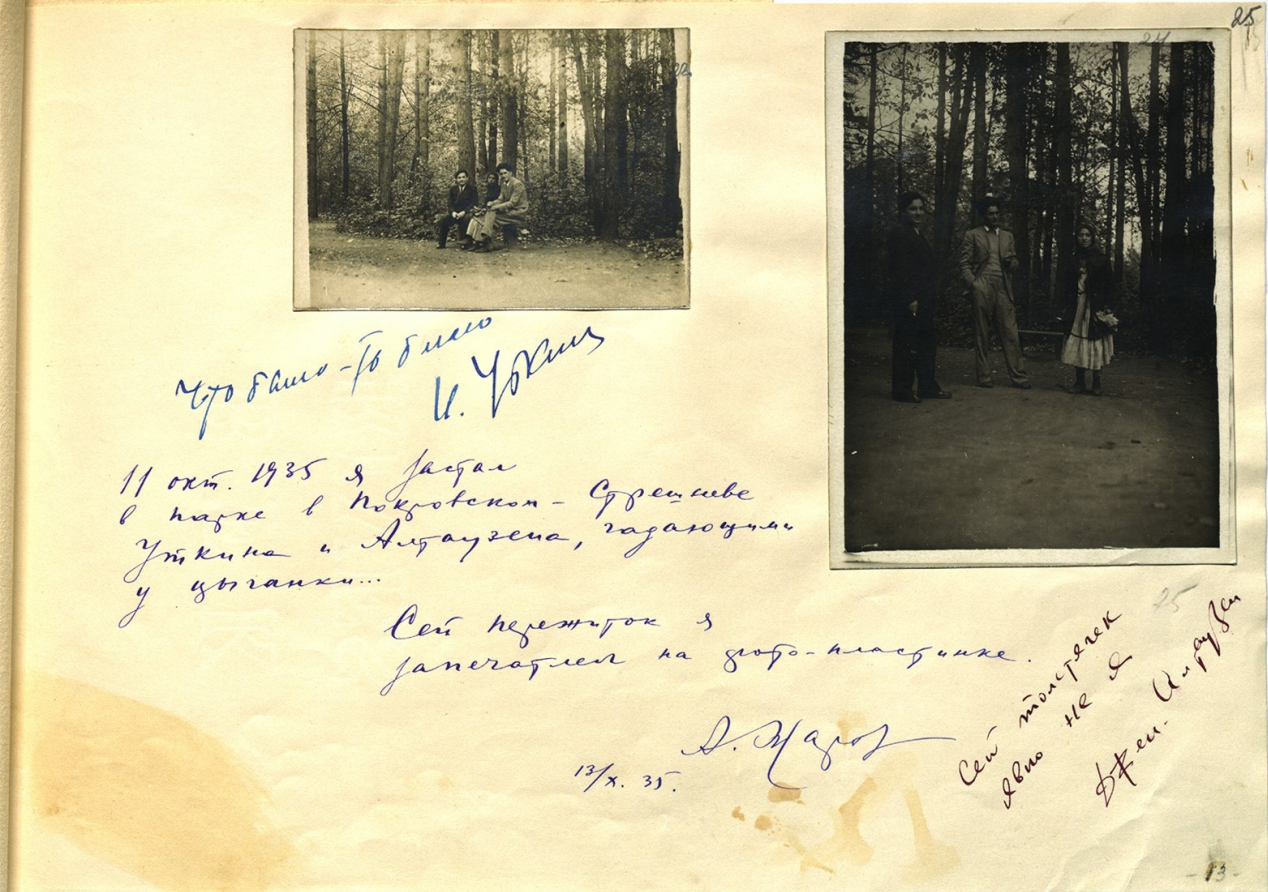 25
24
Что было – то было
И. Уткин
11 окт. 1935 я застал
в парке в Покровском – Стрешневе
Уткина и Алтаузена, гадающими
у цыганки...
Сей пережиток я
запечатлел на фото-пластинке.
А. Жаров
13/X. 35.
25
Сей толстячек
явно не я
Джек Алтаузен
- 13 -